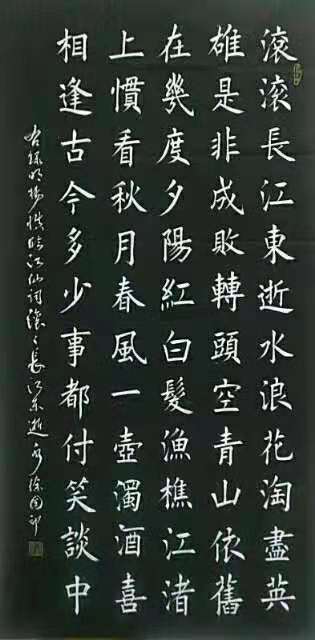 滚滚長江東逝水浪花淘盡英
雄是非成敗轉頭空青山依舊
在幾度夕陽紅白髮漁樵江渚
上慣看秋月春風一壺濁酒喜
相逢古今多少事都付笑談中
右錄明楊慎臨江仙詞滚〻長江东逝水